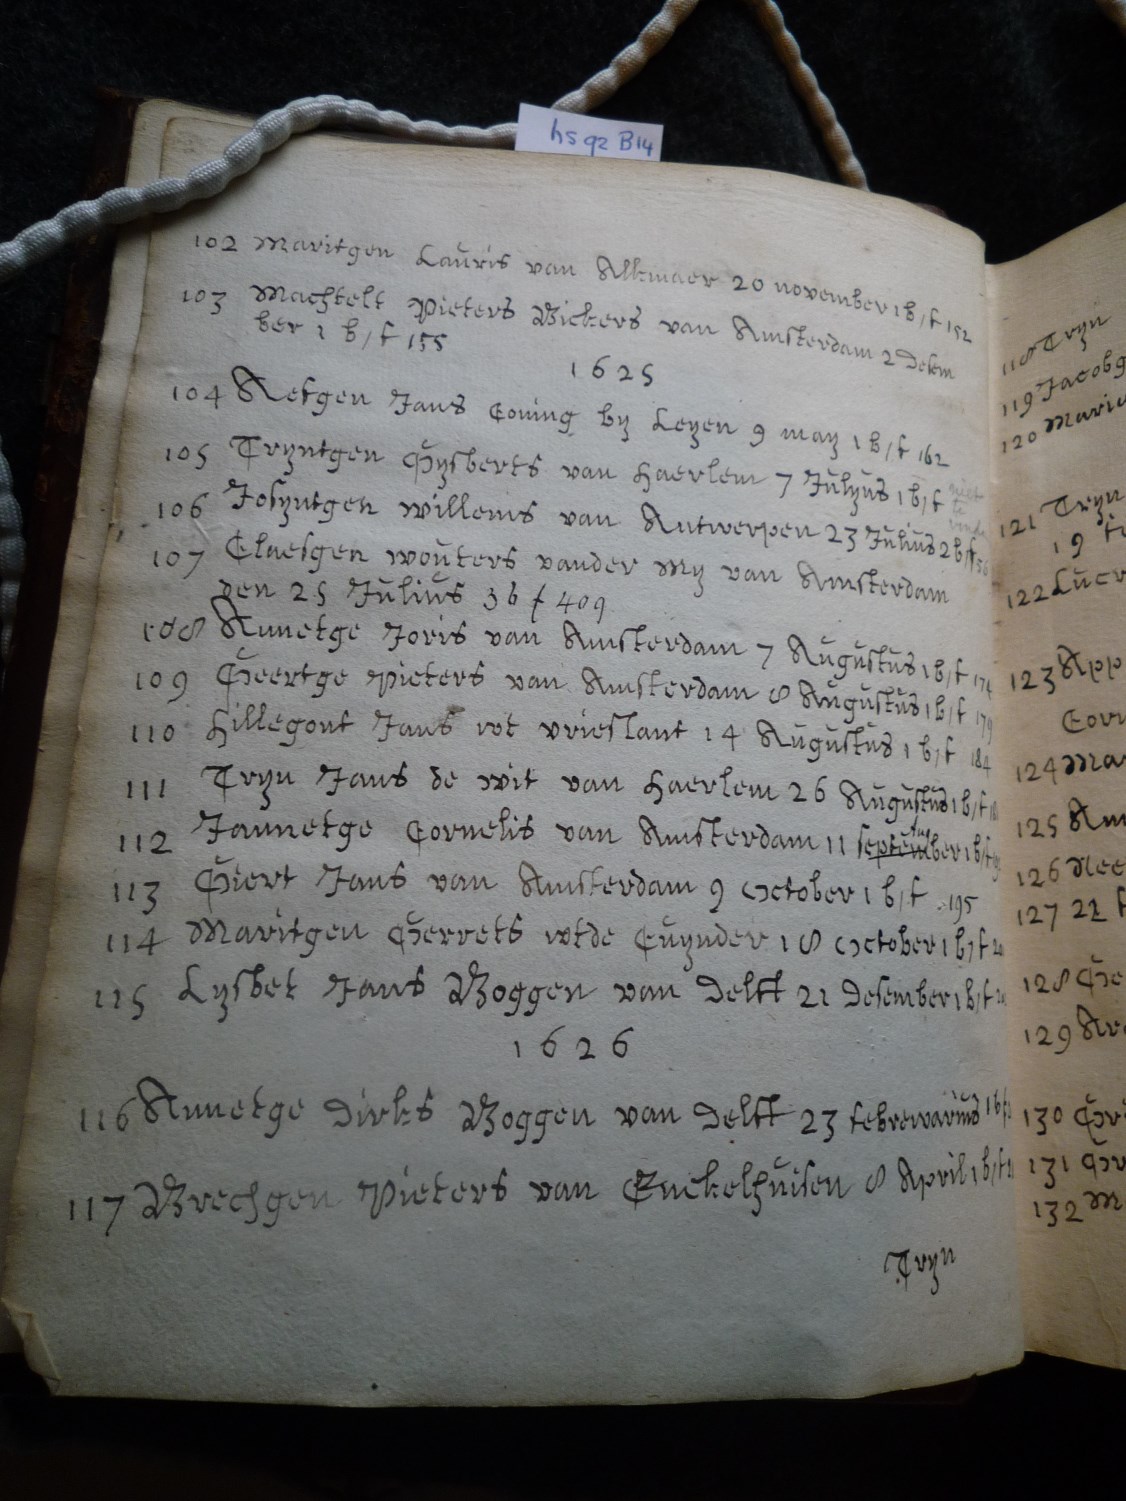 hs 92 B14
102 Maritgen Lauris van Alkmaer 20 november 1 b / f 152
103 Machtelt Pieters Bickers van Amsterdam 2 Desem
ber 1 b / f 155
1625
104 Aefgen Jans Coning by Leyen 9 may 1 b / f 162
105 Tryntgen Gysberts van Haerlem 7 Julyus 1 b / f niet te vinde
106 Josyntgen willems van Antwerpen 23 Julius 2 b / f 56
107 Claesgen wouters vander My van Amsterdam
den 25 Julius 3 b f 409
108 Annetge Joris van Amsterdam 7 Augustus 1 b / f 174
109 Geertge Pieters van Amsterdam 8 Augustus 1 b / f 179
110 Hillegont Jans wt vrieslant 14 Augustus 1 b / f 184
111 Tryn Jans de wit van Haerlem 26 Augustus 1 b / f
112 Jannetge Cornelis van Amsterdam 11 september 1 b / f
113 Giert Jans van Amsterdam 9 October 1 b / f 195
114 Maritgen Gerrets wtde Cuynder 18 October 1 b / f
115 Lysbet Jans Boggen van Delft 21 Desember 1 b / f
1626
116 Annetge Dirks Boggen van Delft 23 febrewarius 1 b f
117 Brechgen Pieters van Enckelhuisen 8 April 1 b / f
Tryn
118 Tryn
119 Jacobg
120 Mari
121 Tryn
19
122 Lucr
123 App
Corn
124 Mar
125 Ann
126 Nee
127 22
128 Ge
129 Ar
130 Gr
131 Gr
132 M